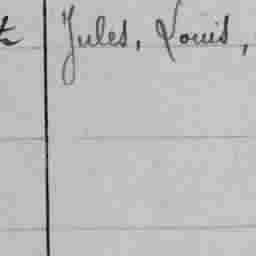 t Jules, Louis,